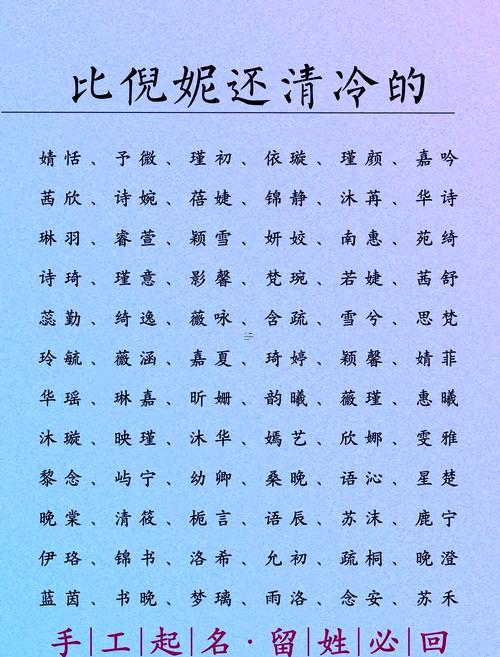 比倪妮还清冷的
婧恬、予微、瑾初、依璇、瑾颜、嘉吟
茜欣、诗婉、蓓婕、锦静、沐苒、华诗
琳羽、睿萱、颖雪、妍姣、南惠、苑绮
诗琦、瑾意、影馨、梵琬、若婕、茜舒
蕊勤、绮逸、薇咏、含疏、雪兮、思梵
玲毓、薇涵、嘉夏、琦婷、颖馨、婧菲
华瑶、琳嘉、昕姗、韵曦、薇瑾、惠曦
沐璇、映瑾、沐华、嫣艺、欣娜、雯雅
黎念、屿宁、幼卿、桑晚、语沁、星楚
晚棠、清筱、栀言、语辰、苏沫、鹿宁
伊珞、锦书、洛希、允初、疏桐、晚澄
蓝茵、书晚、梦璃、雨洛、念安、苏禾
手|工|起|名·留|姓|必|回